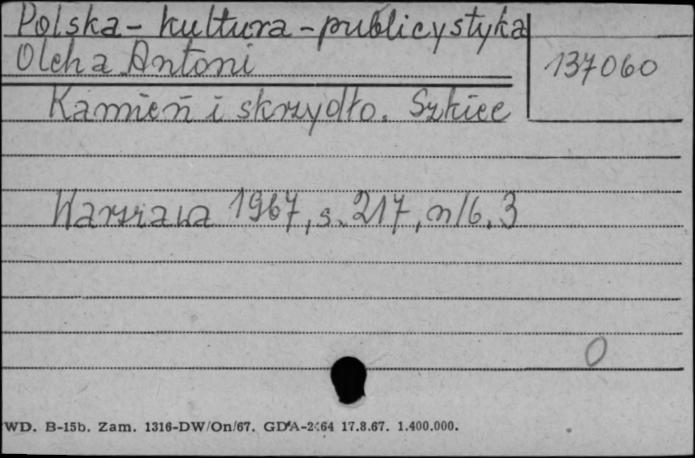 Polska - kultura - publicystyka
Olcha Antoni
137060
Kamień i skrzydło. Szkice
Warszawa 1967, s. 217, nlb. 3
0
WD. B-15b. Zam. 1316-DW/On/67. GDA-2464 17.8.67. 1.400.000.